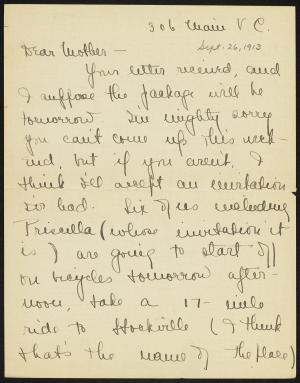 306 Main V C.
Sept. 26, 1913
Dear Mother —
Your letter received, and
I suppose the package will be
tomorrow. I'm mighty sorry
you can't come up this week-
end, but if you aren't, I
think I'll accept an invitation
I've had. Six of us including
Priscilla (whose invitation it
is) are going to start off
on bicycles tomorrow after-
noon, take a 17-mile
ride to Stockville (I think
that's the name of the place)